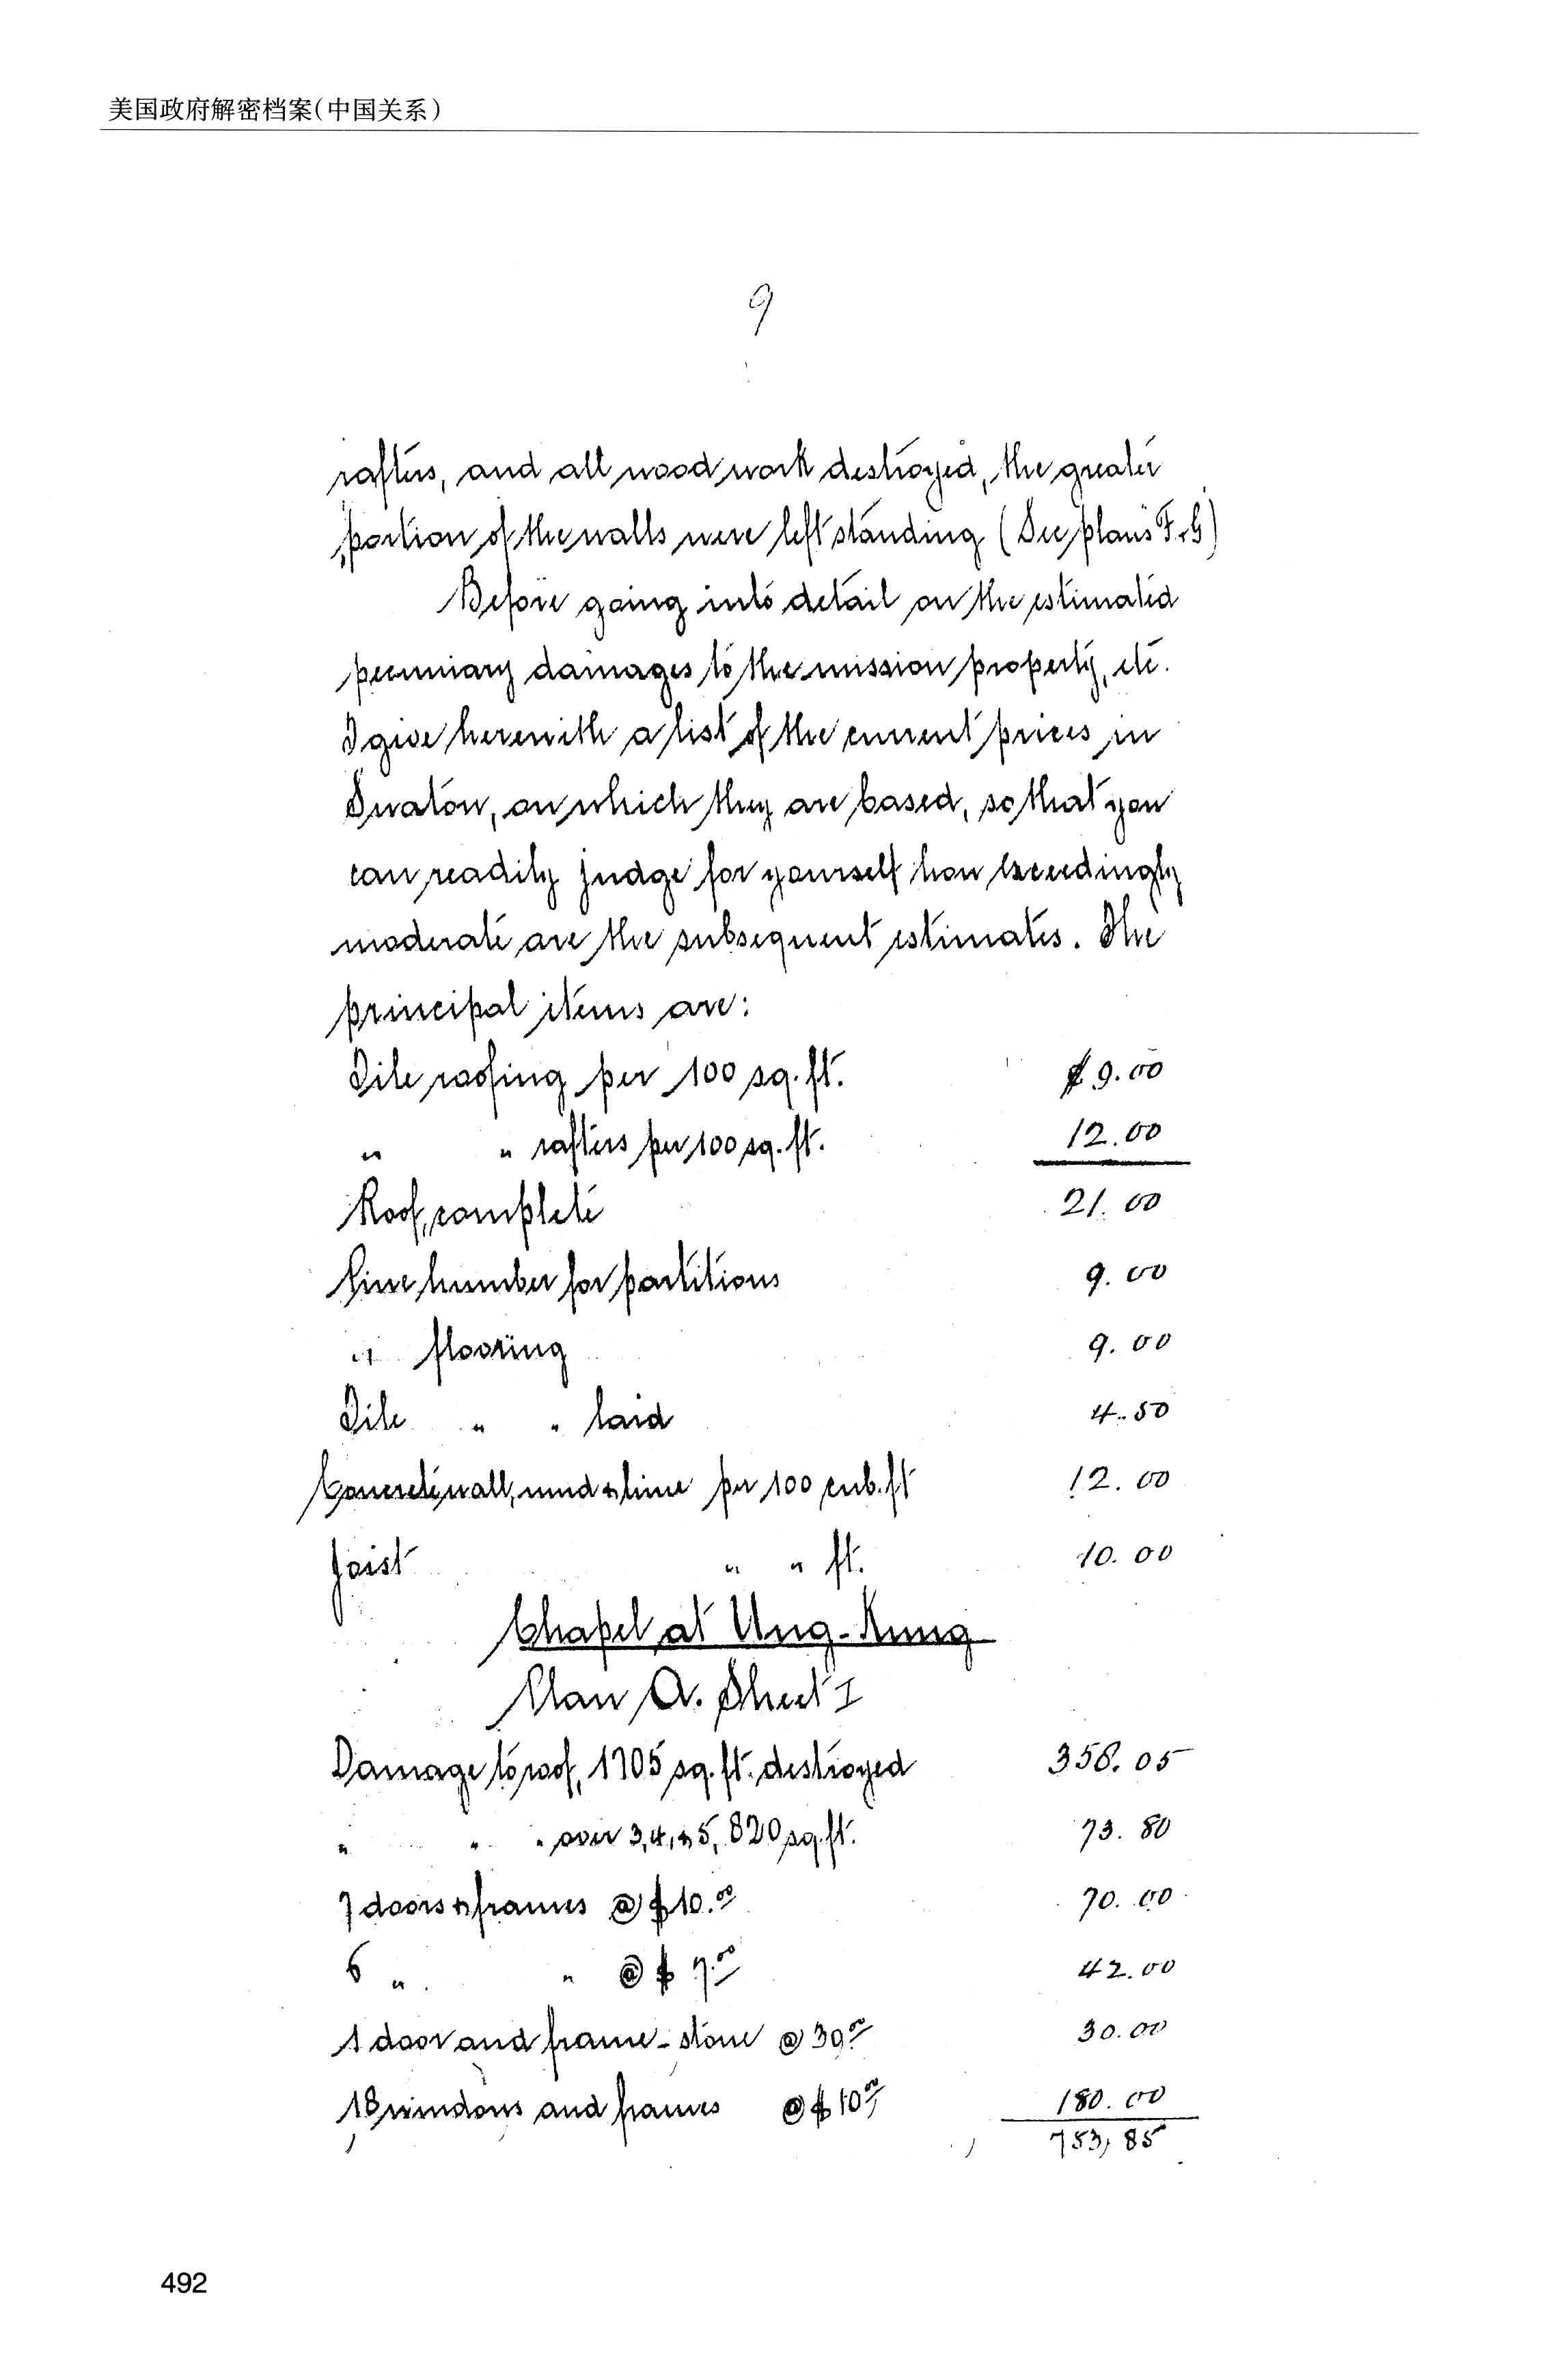 美国政府解密档案(中国关系)
9
rafters, and all wood work destroyed, the greater
portion of the walls were left standing (See plans F & G)
Before going into detail on the estimated
pecuniary damages to the mission property, etc.
I give herewith a list of the current prices in
Swatow, on which they are based, so that you
can readily judge for yourself how exceedingly
moderate are the subsequent estimates. The
principal items are:
Tile roofing per 100 sq. ft. $9.00
" " rafters per 100 sq. ft. 12.00
Roof, complete 21.00
Pine lumber for partitions 9.00
" flooring 9.00
Tile " " laid 4.50
Concrete wall, mud & lime per 100 cub. ft 12.00
Joist " " ft. 10.00
Chapel at Ung-Kung
Plan A. Sheet I
Damage to roof, 1705 sq. ft. destroyed 358.05
" " " over 3, 4, & 5, 820 sq. ft. 73.80
7 doors & frames @ $10.00 70.00
6 " " @ $7.00 42.00
1 door and frame - stone @ 30.00 30.00
18 windows and frames @ $10.00 180.00
753,85
492